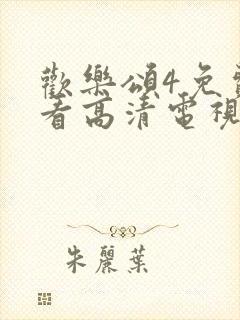 歡樂頌4免費
看高清電視
朱麗葉